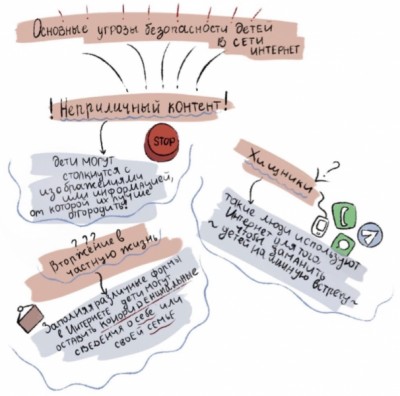 Основные угрозы безопасности детей
в сети
интернет
! Неприличный контент !
STOP
дети могут
столкнутся с
изображениями
или информацией,
от которой их лучше
огородить!
Хищники
?
такие люди используют
Интернет для того
чтобы заманить
~ детей на личную встречу ~
???
Вторжение в
частную жизнь
Заполняя различные формы
в Интернете, дети могут
оставить конфиденциальные
сведения о себе или
своей семье